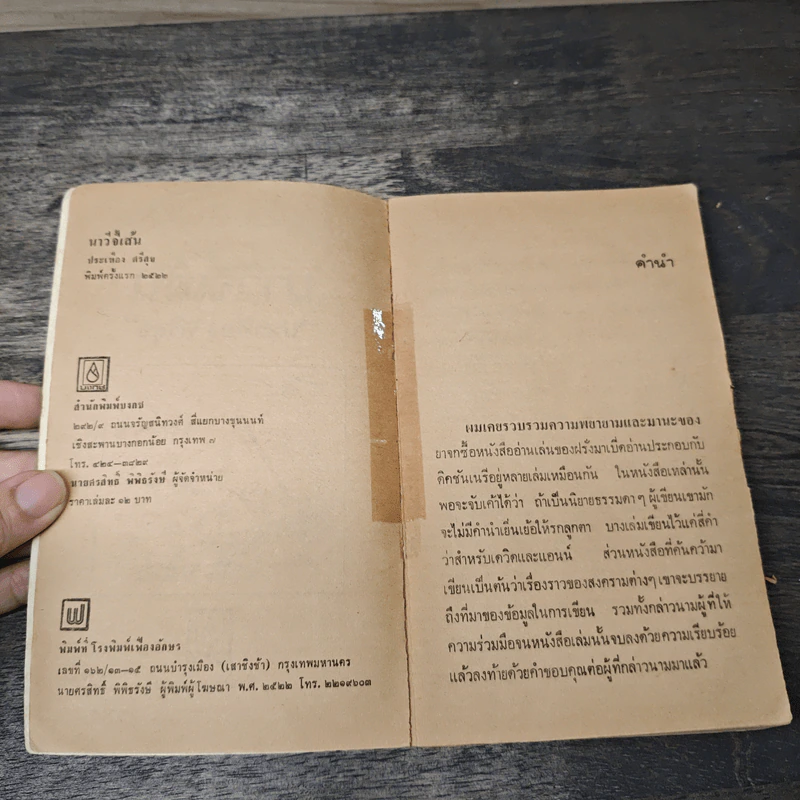 นาวีจี้เส้น
ประเทือง ศรีสุข
พิมพ์ครั้งแรก ๒๕๒๒
สำนักพิมพ์บงกช
๒๙๒/๙ ถนนจรัญสนิทวงศ์ สี่แยกบางขุนนนท์
เชิงสะพานบางกอกน้อย กรุงเทพ ๗
โทร. ๔๒๔—๓๘๒๙
นายศรสิทธิ์ พิพิธรังษี ผู้จัดจำหน่าย
ราคาเล่มละ ๑๒ บาท
พิมพ์ที่ โรงพิมพ์เฟื่องอักษร
เลขที่ ๑๖๒/๑๓—๑๕ ถนนบำรุงเมือง (เสาชิงช้า) กรุงเทพมหานคร
นายศรสิทธิ์ พิพิธรังษี ผู้พิมพ์ผู้โฆษณา พ.ศ. ๒๕๒๒ โทร. ๒๒๑๙๖๐๓
คำนำ
ผมเคยรวบรวมความพยายามและมานะของ
ยาจกซื้อหนังสืออ่านเล่นของฝรั่งมาเบิ่งอ่านประกอบกับ
ดิคชันเนรีอยู่หลายเล่มเหมือนกัน ในหนังสือเหล่านั้น
พอจะจับเค้าได้ว่า ถ้าเป็นนิยายธรรมดาๆ ผู้เขียนเขามัก
จะไม่มีคำนำเยิ่นเย้อให้รกลูกตา บางเล่มเขียนไว้แค่สี่คำ
ว่าสำหรับเดวิดและแอนน์ ส่วนหนังสือที่ค้นคว้ามา
เขียนเป็นต้นว่าเรื่องราวของสงครามต่างๆ เขาจะบรรยาย
ถึงที่มาของข้อมูลในการเขียน รวมทั้งกล่าวนามผู้ที่ให้
ความร่วมมือจนหนังสือเล่มนั้นจบลงด้วยความเรียบร้อย
แล้วลงท้ายด้วยคำขอบคุณต่อผู้ที่กล่าวนามมาแล้ว